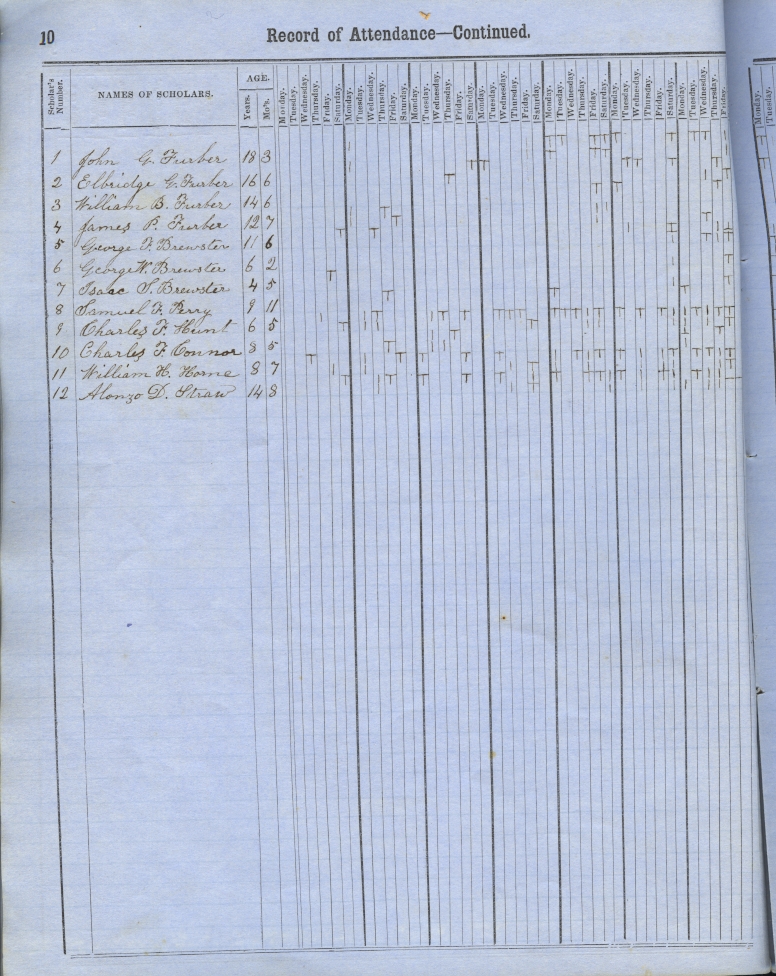 10
Record of Attendance—Continued.
Scholar's Number. NAMES OF SCHOLARS. AGE. Years. Mo's. Monday. Tuesday. Wednesday. Thursday. Friday. Saturday. Monday. Tuesday. Wednesday. Thursday. Friday. Saturday. Monday. Tuesday. Wednesday. Thursday. Friday. Saturday. Monday. Tuesday. Wednesday. Thursday. Friday. Saturday. Monday. Tuesday. Wednesday. Thursday. Friday. Saturday. Monday. Tuesday. Wednesday. Thursday. Friday. Saturday. Monday. Tuesday. Wednesday. Thursday. Friday. Monday. Tuesday.
1 John G. Furber 18 3
2 Elbridge G. Furber 16 6
3 William B. Furber 14 6
4 James P. Furber 12 7
5 George F. Brewster 11 6
6 George W. Brewster 6 2
7 Isaac S. Brewster 4 5
8 Samuel F. Perry 9 11
9 Charles F. Hunt 6 5
10 Charles F. Connor 8 5
11 William H. Horne 8 7
12 Alonzo D. Straw 14 8